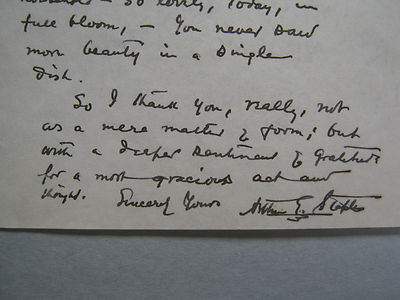 – so lovely, today, in
full bloom, – You never saw
more beauty in a single
dish.
So I thank you, really, not
as a mere matter of form; but
with a deeper sentiment of gratitude
for a most gracious act and
thought. Sincerely Yours Arthur G. Staples